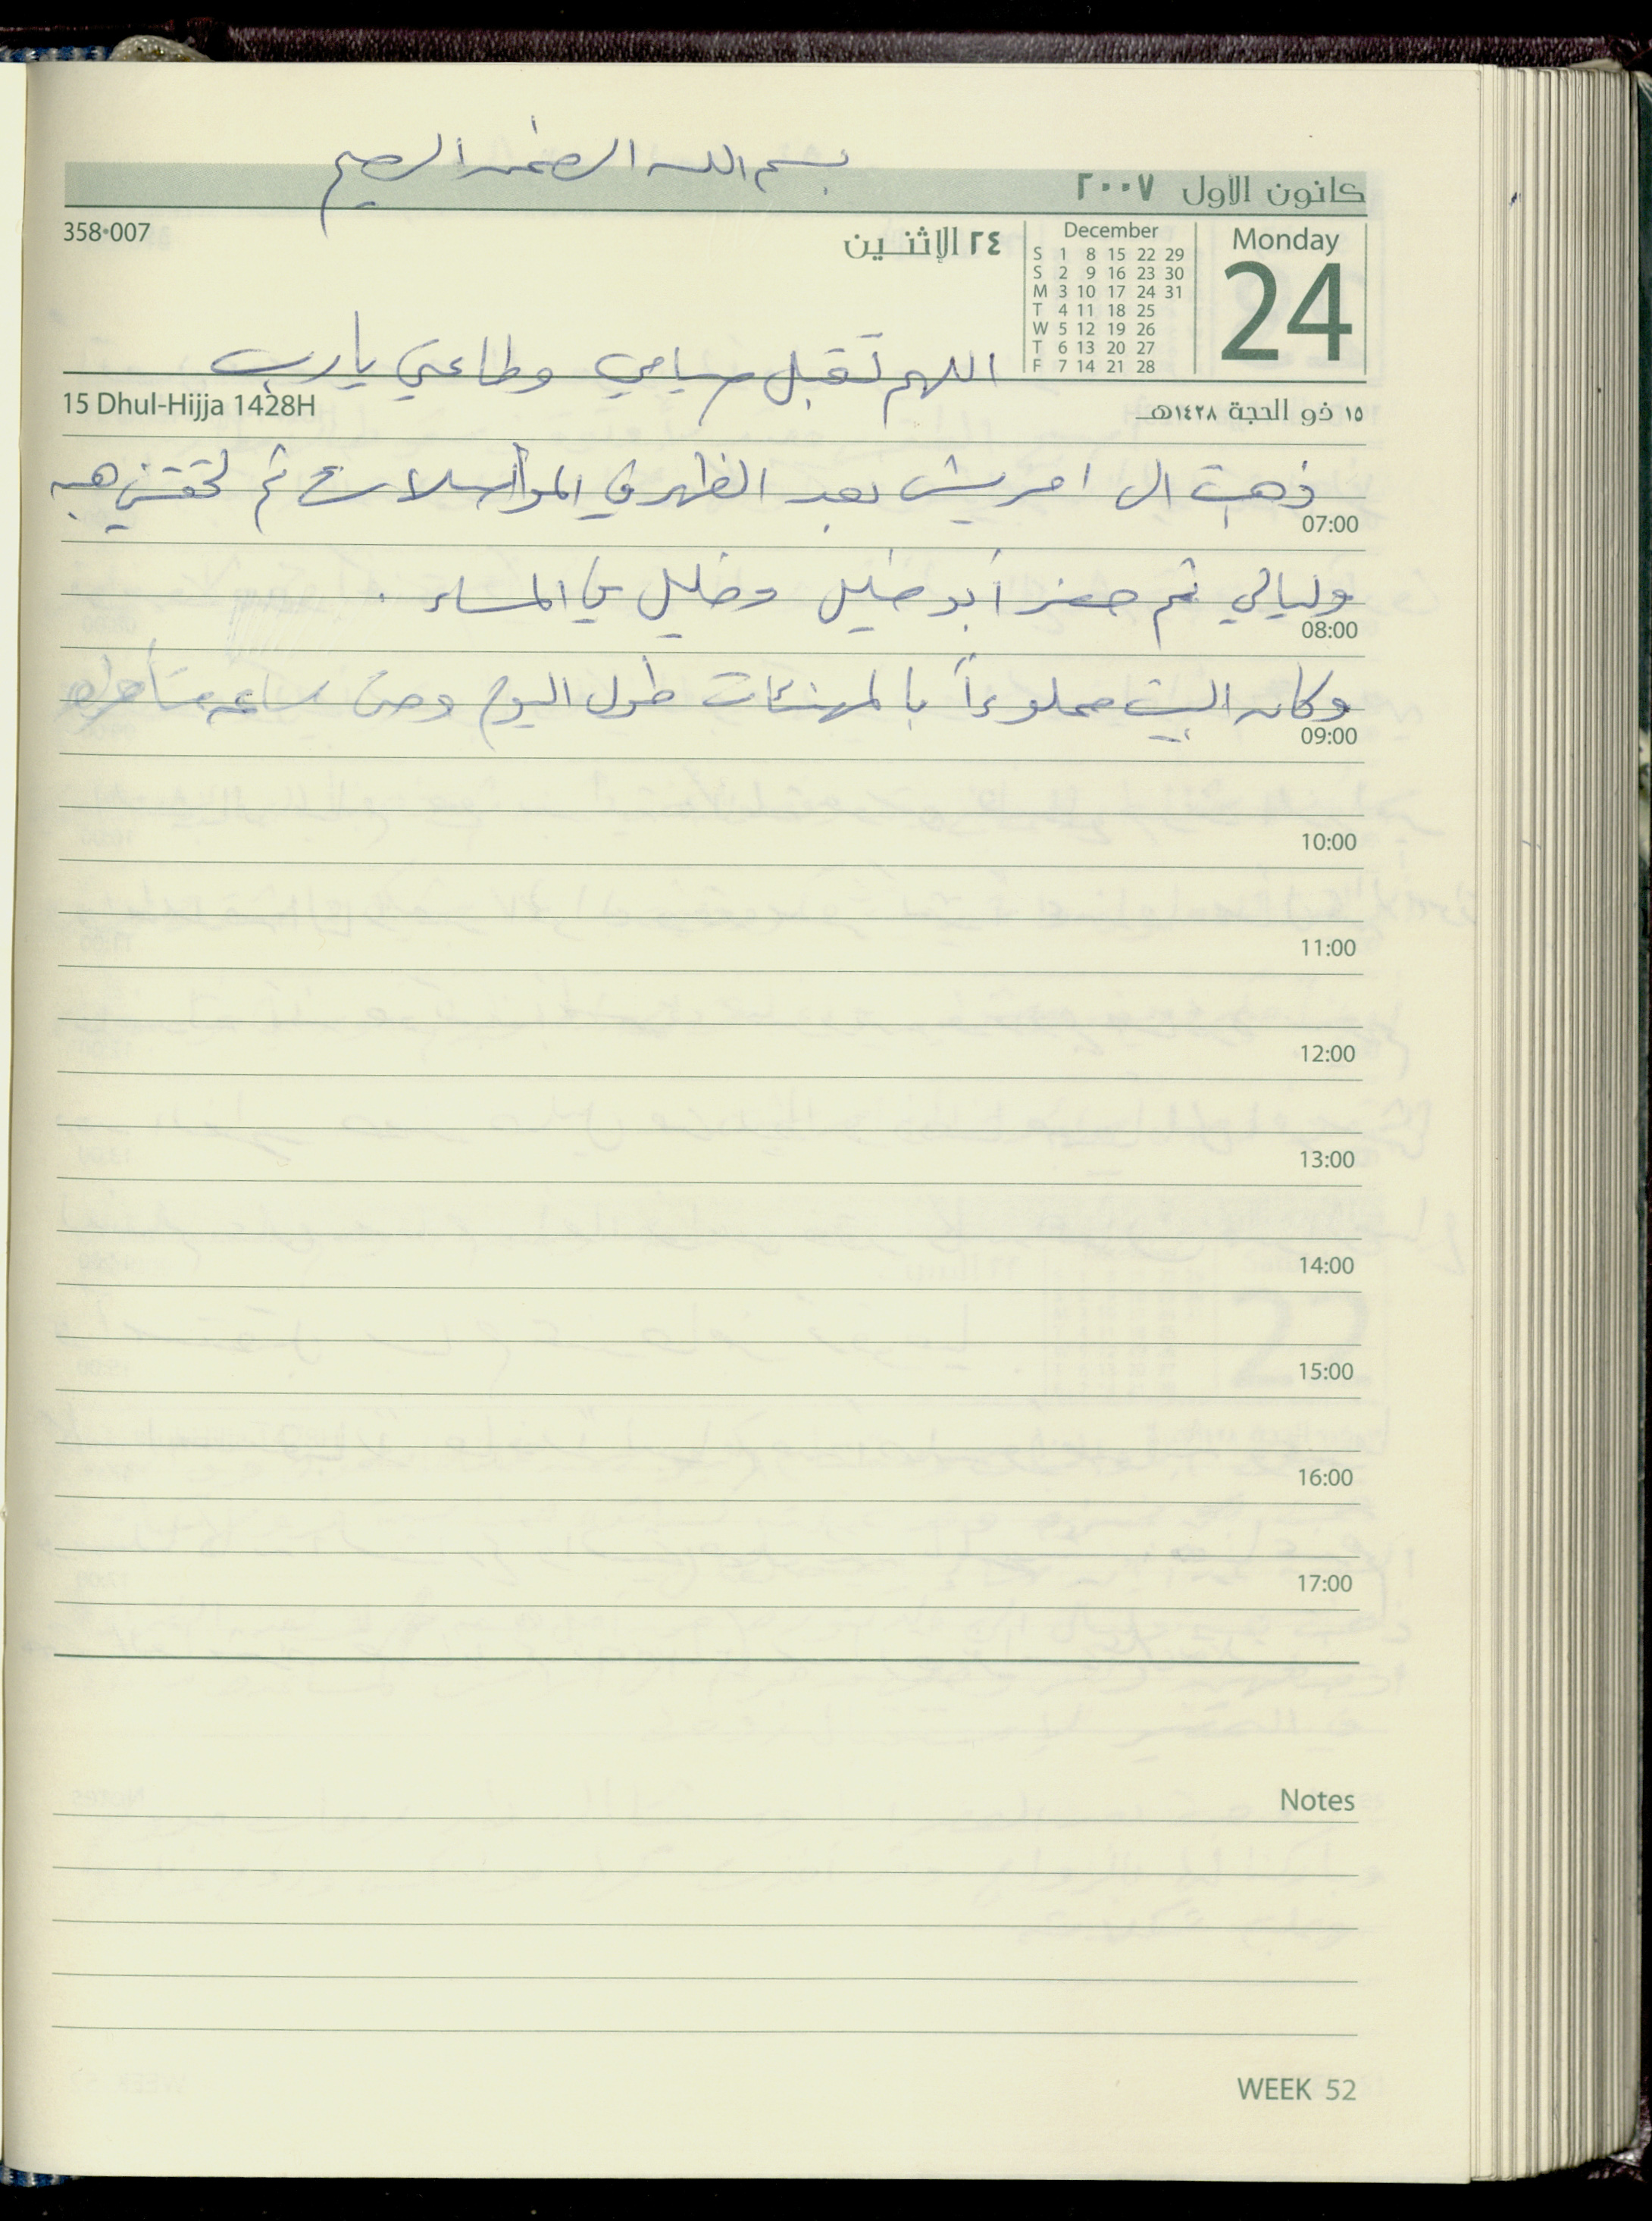 بسم الله الرحمن الرحيم
كانون الأول ٢٠٠٧
358•007
٢٤ الإثنين
December
S 1 8 15 22 29
S 2 9 16 23 30
M 3 10 17 24 31
T 4 11 18 25
W 5 12 19 26
T 6 13 20 27
F 7 14 21 28
Monday
24
اللهم تقبل صيامي وطاعتي يا رب
15 Dhul-Hijja 1428H
١٥ ذو الحجة ١٤٢٨هـ
ذهبت الى امريش بعد الظهر في المواصلات ثم لحقتني هبه
07:00
وليالي ثم حضر أبو خليل وخليل في المساء .
08:00
وكان البيت مملوءاً بالمهنئات طول اليوم وحتى ساعه متأخره
09:00
10:00
11:00
12:00
13:00
14:00
15:00
16:00
17:00
Notes
WEEK 52